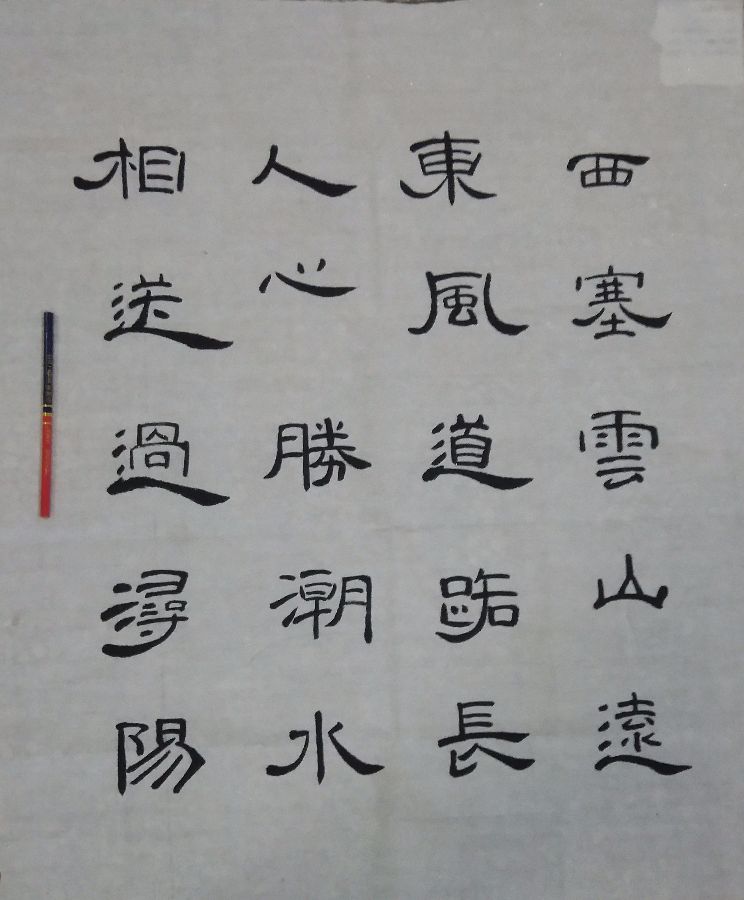 西塞雲山遠
東風道路長
人心勝潮水
相送過潯陽